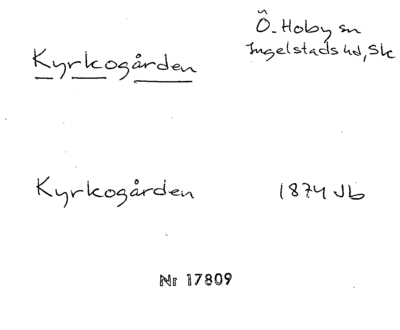 Ö. Hoby sn
Ingelstads hd, Sk
Kyrkogården
Kyrkogården 1874 Jb
Nr 17809